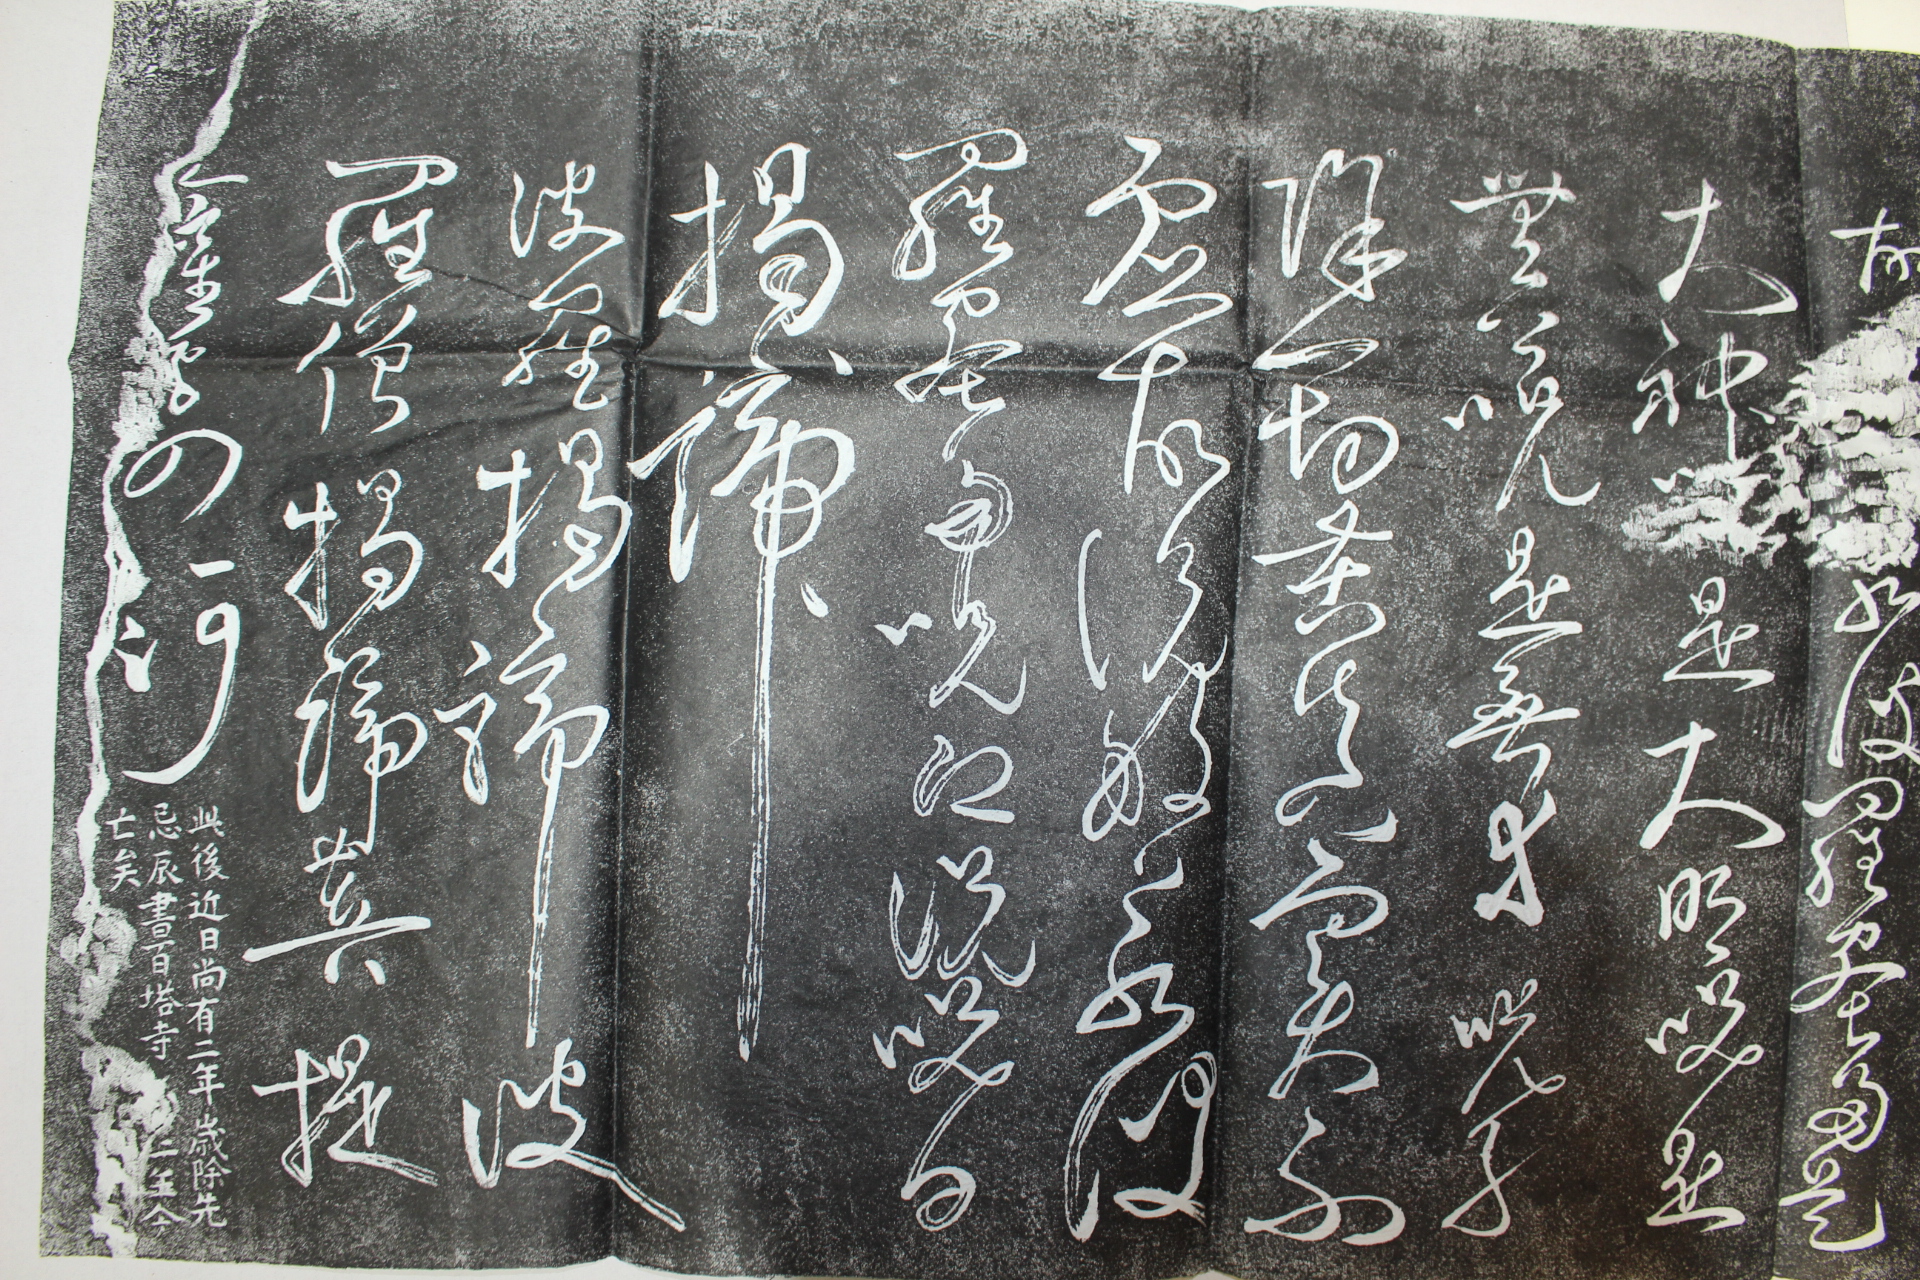 故 若波羅蜜多是
大神咒是大明咒是
無上咒是無等等咒能
除一切苦真實不
虛故說般若波
羅蜜多咒即說咒曰
揭諦
波羅揭諦波
羅僧揭諦菩提
薩婆訶
此後近日尚有二年歲除先
忌辰書百塔寺 二年今
亡矣